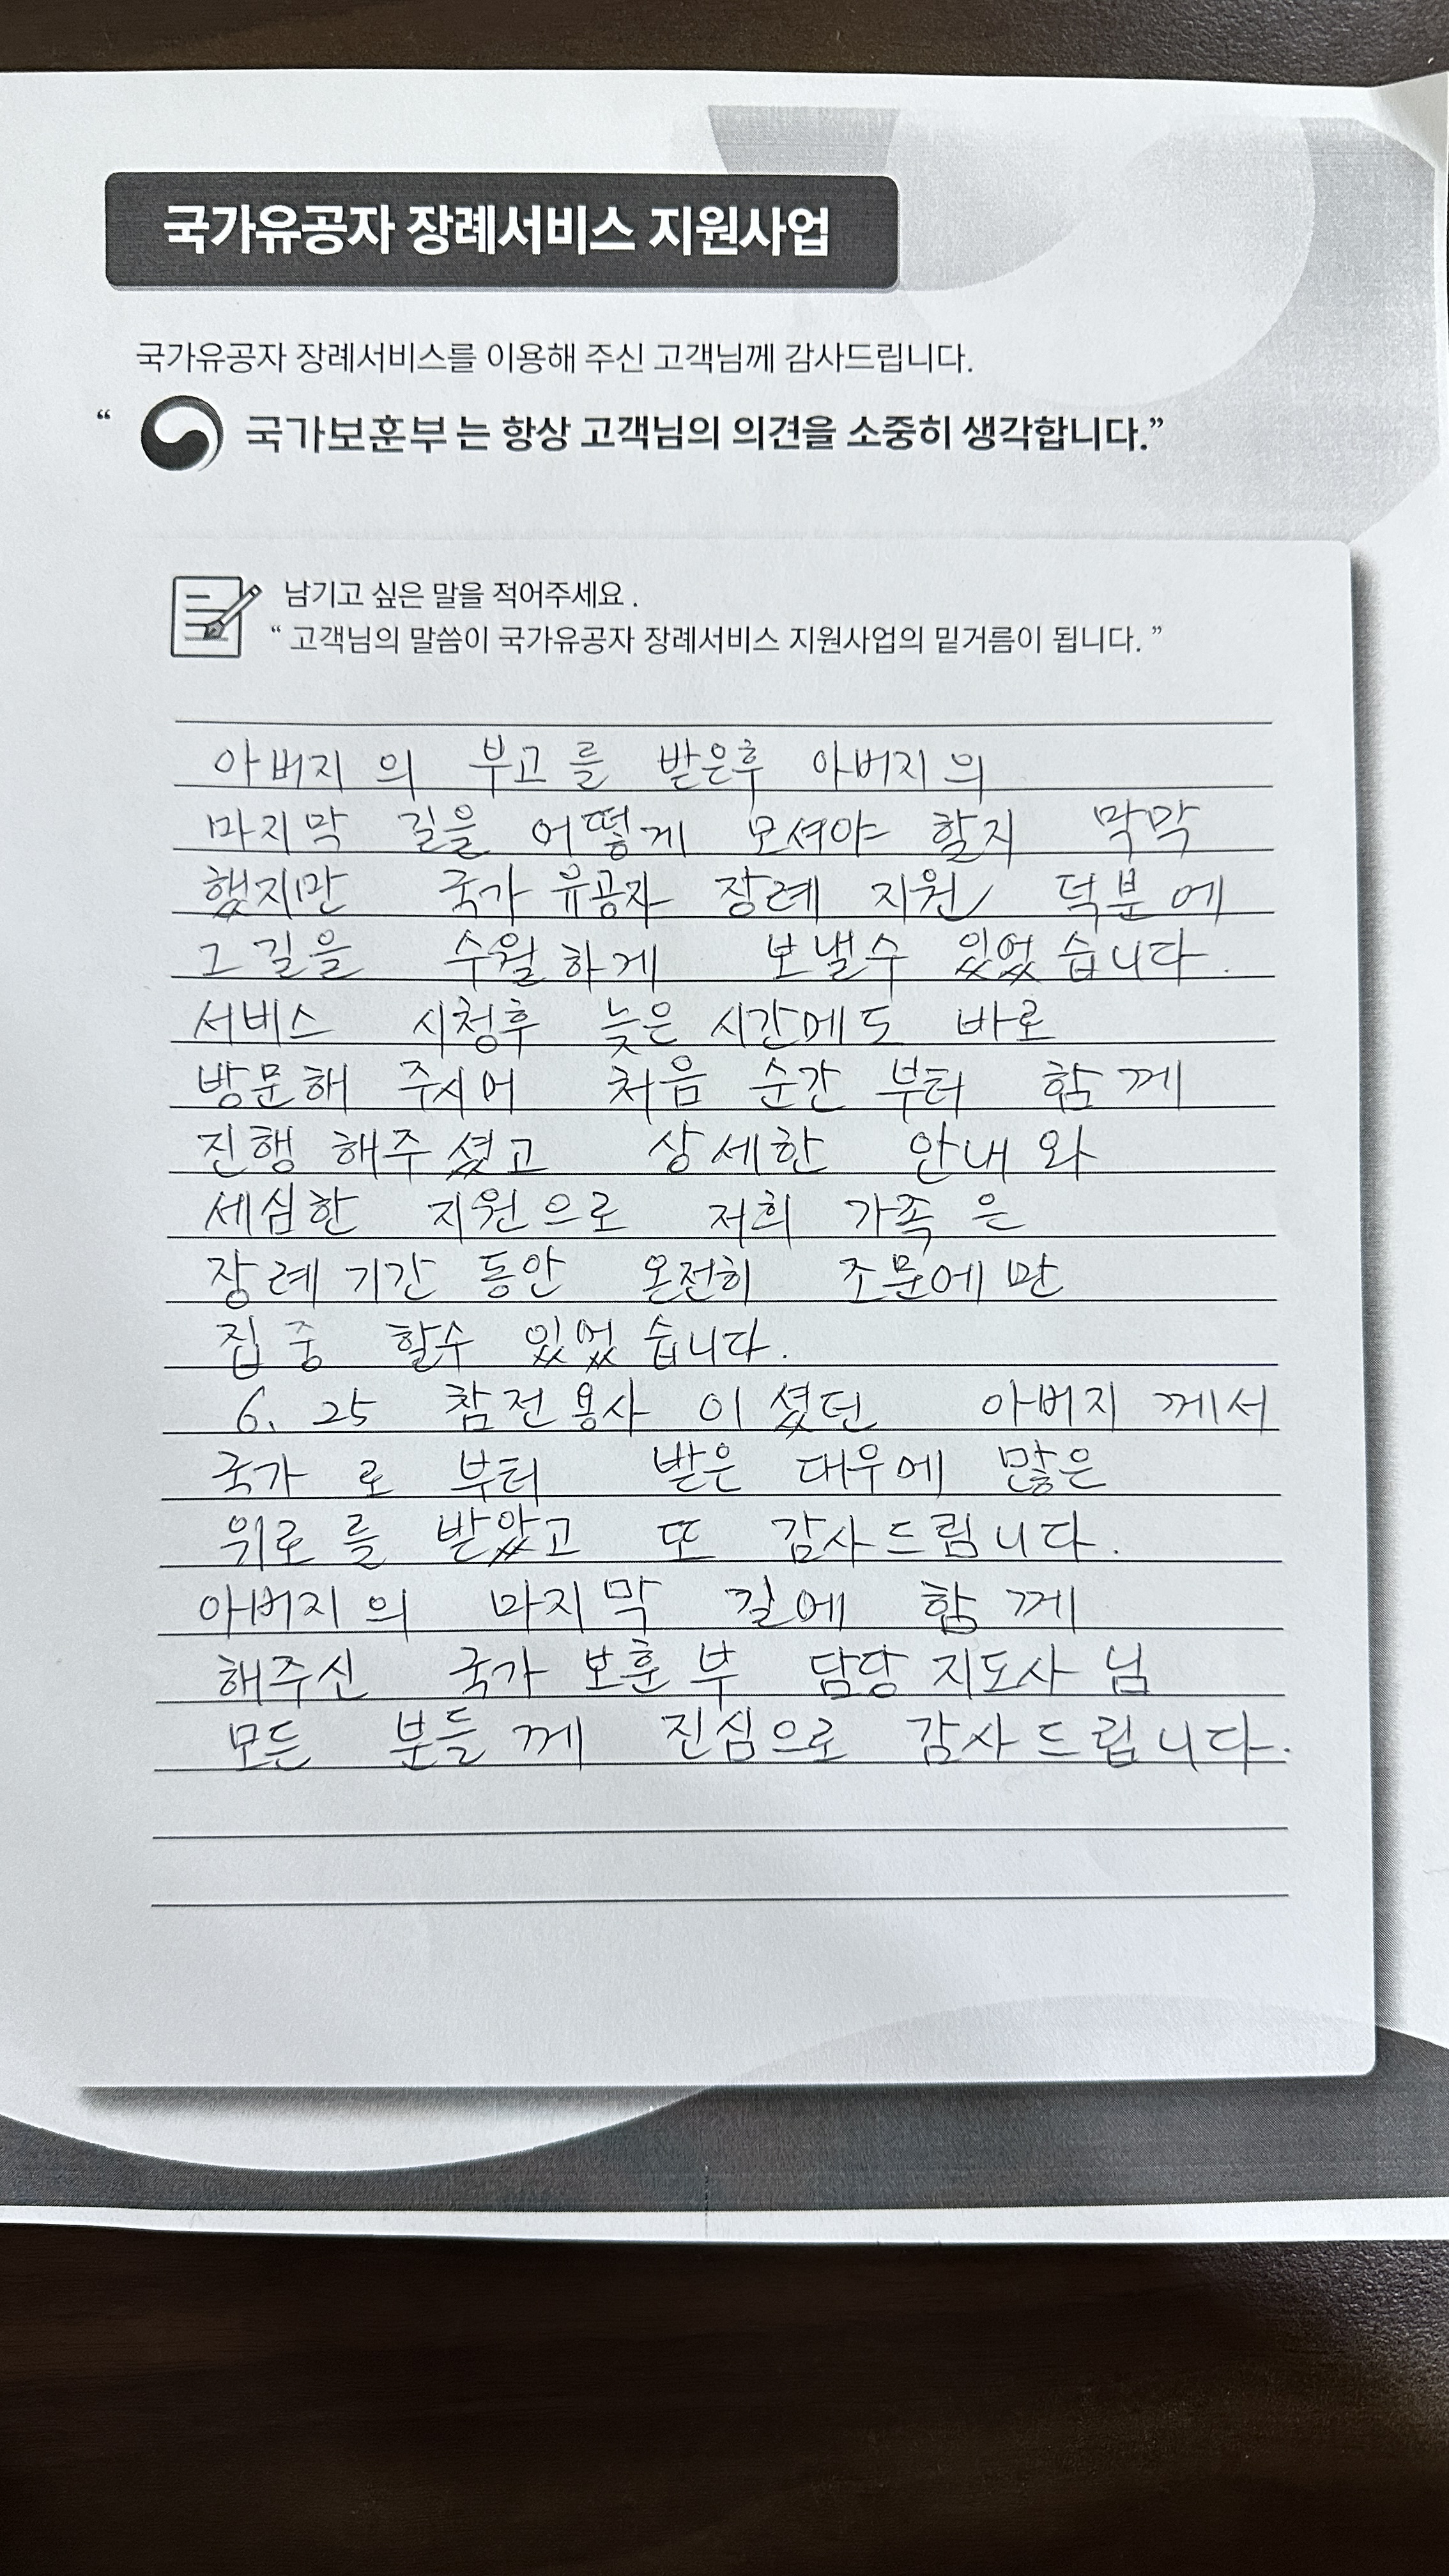 국가유공자 장례서비스 지원사업
국가유공자 장례서비스를 이용해 주신 고객님께 감사드립니다.
“ 국가보훈부 는 항상 고객님의 의견을 소중히 생각합니다.”
남기고 싶은 말을 적어주세요 .
“ 고객님의 말씀이 국가유공자 장례서비스 지원사업의 밑거름이 됩니다. ”
아버지의 부고를 받은후 아버지의
마지막 길을 어떻게 모셔야 할지 막막
했지만 국가유공자 장례 지원 덕분에
그길을 수월하게 보낼수 있었습니다.
서비스 시청후 늦은 시간에도 바로
방문해 주시어 처음 순간부터 함께
진행해주셨고 상세한 안내와
세심한 지원으로 저희 가족은
장례기간 동안 온전히 조문에만
집중 할수 있었습니다.
6. 25 참전용사이셨던 아버지께서
국가로부터 받은 대우에 많은
위로를 받았고 또 감사드립니다.
아버지의 마지막 길에 함께
해주신 국가보훈부 담당지도사님
모든 분들께 진심으로 감사드립니다.